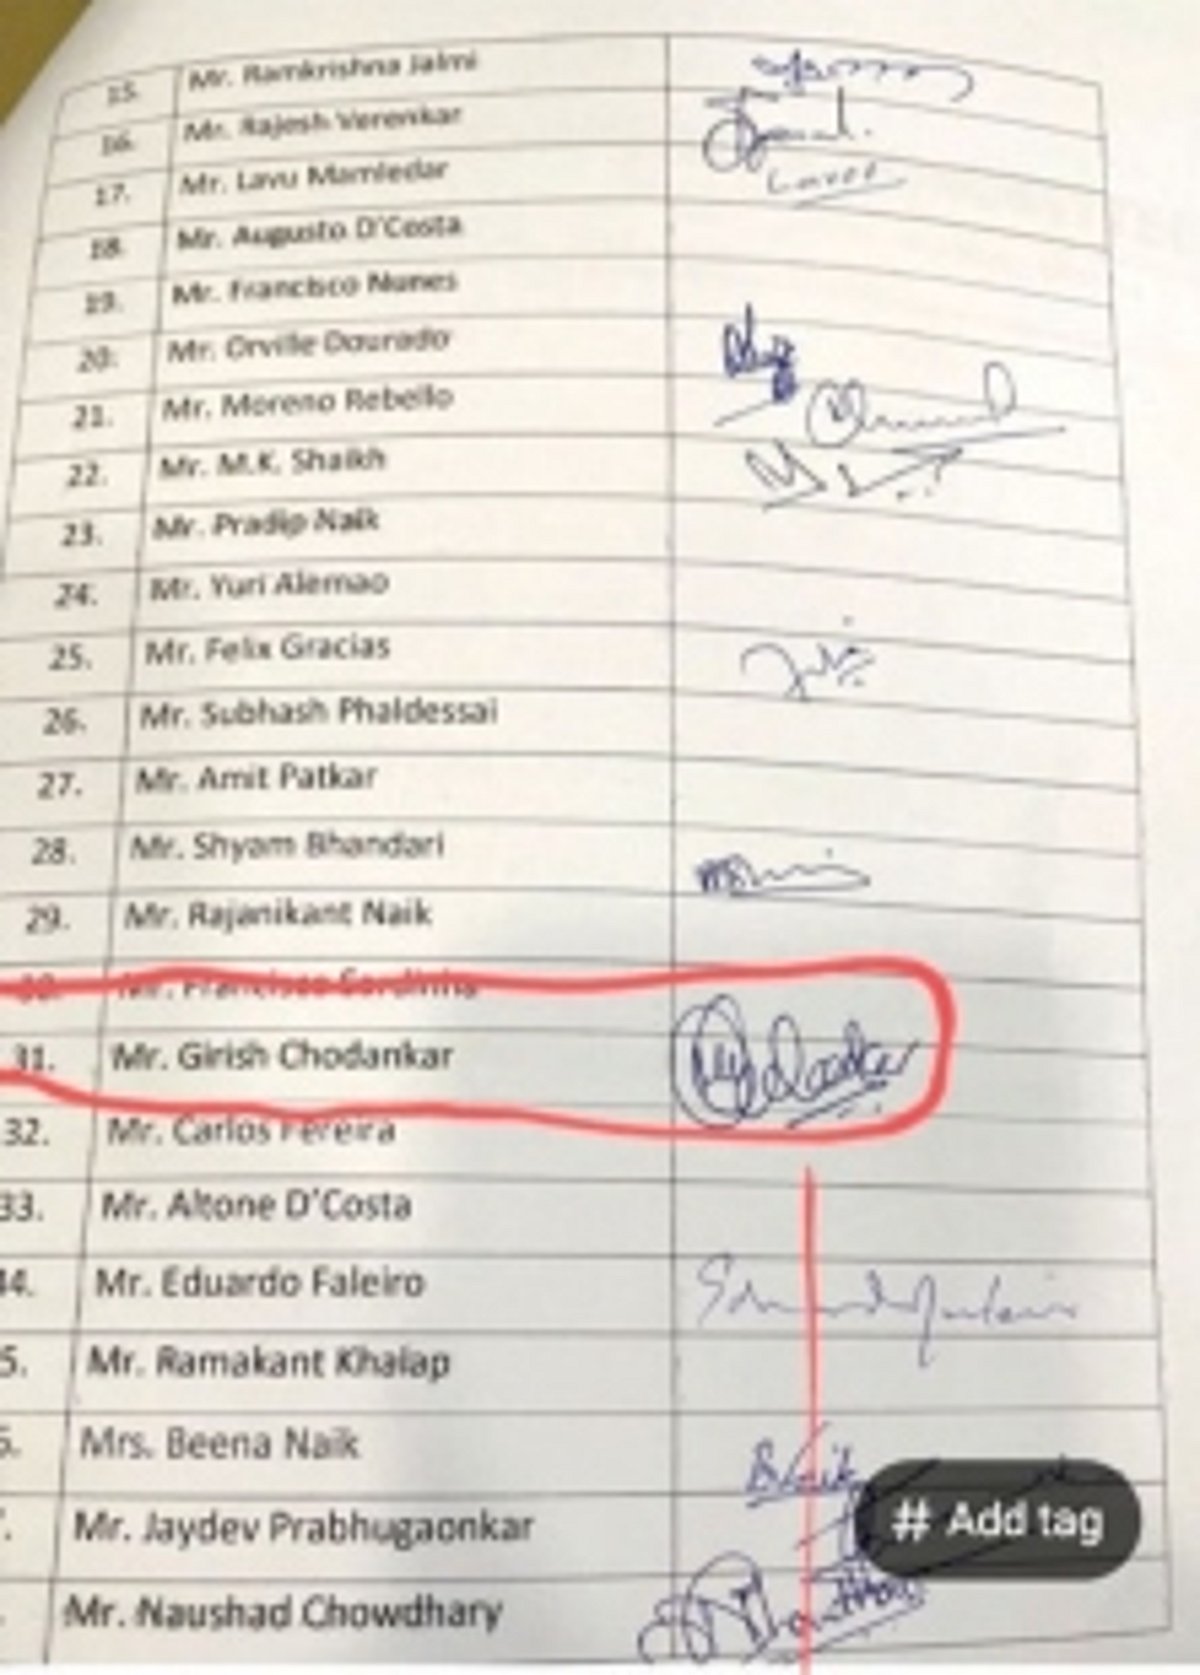 15. Mr. Ramkrishna Jalmi
16. Mr. Rajesh Verenkar
17. Mr. Lavu Mamledar
18. Mr. Augusto D'Costa
19. Mr. Francisco Nunes
20. Mr. Orville Dourado
21. Mr. Moreno Rebello
22. Mr. M.K. Shaikh
23. Mr. Pradip Naik
24. Mr. Yuri Alemao
25. Mr. Felix Gracias
26. Mr. Subhash Phaldessai
27. Mr. Amit Patkar
28. Mr. Shyam Bhandari
29. Mr. Rajanikant Naik
30. Mr. Francisco Sardinha
31. Mr. Girish Chodankar
32. Mr. Carlos Fereira
33. Mr. Altone D'Costa
44. Mr. Eduardo Faleiro
5. Mr. Ramakant Khalap
6. Mrs. Beena Naik B Naik
Mr. Jaydev Prabhugaonkar
# Add tag
Mr. Naushad Chowdhary